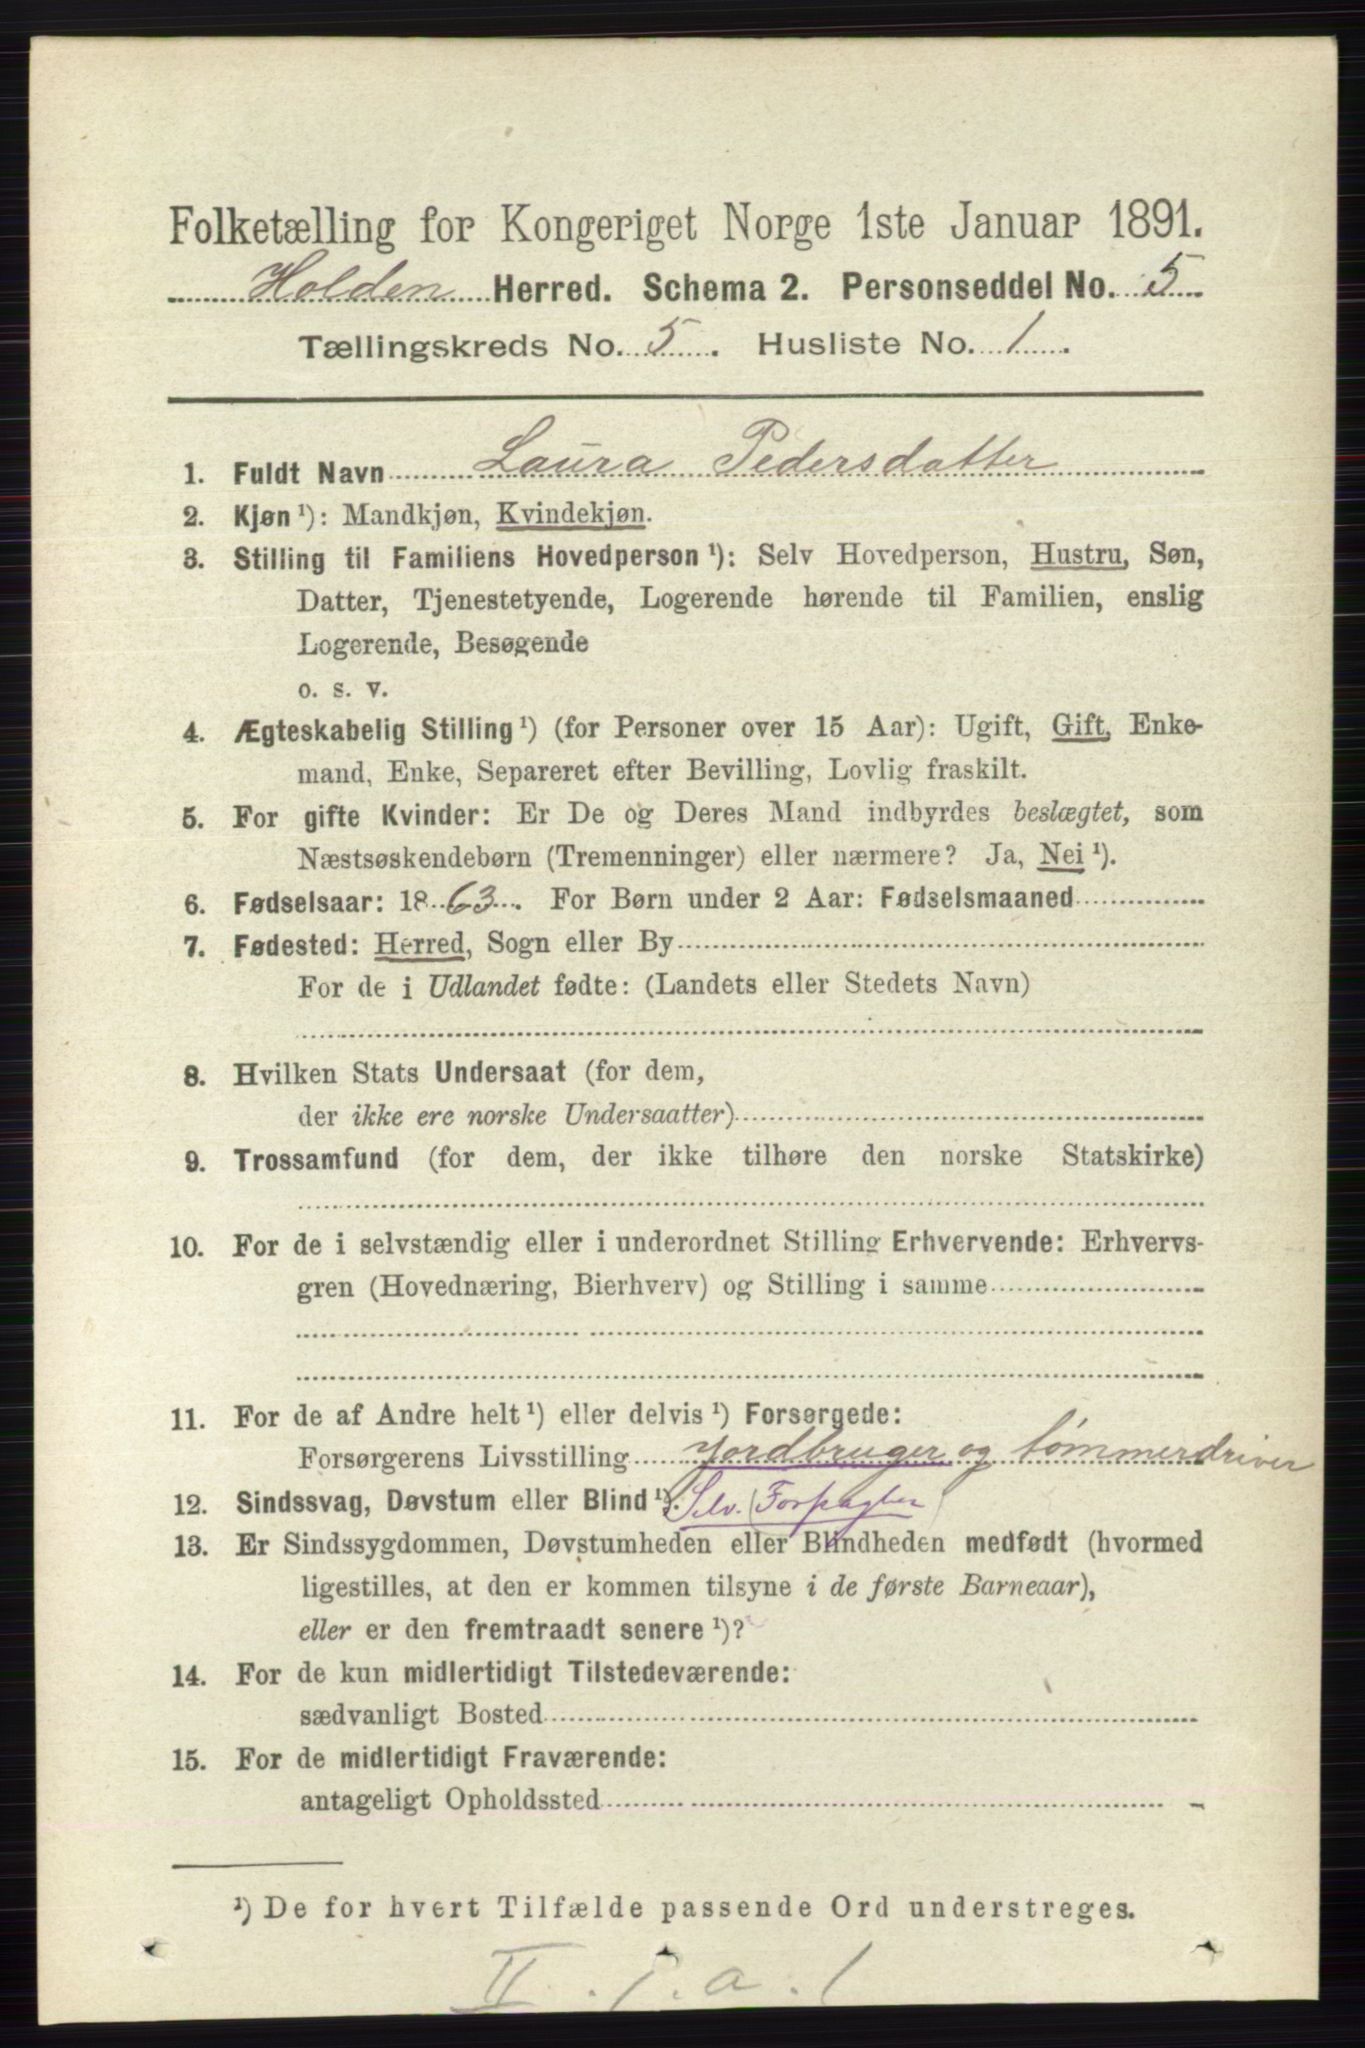 Folketælling for Kongeriget Norge 1ste Januar 1891.
Holden Herred. Schema 2. Personseddel No. 5
Tællingskreds No. 5. Husliste No. 1.
1. Fuldt Navn Laura Pedersdatter
2. Kjøn ¹): Mandkjøn, Kvindekjøn.
3. Stilling til Familiens Hovedperson ¹): Selv Hovedperson, Hustru, Søn,
Datter, Tjenestetyende, Logerende hørende til Familien, enslig
Logerende, Besøgende
o. s. v.
4. Ægteskabelig Stilling ¹) (for Personer over 15 Aar): Ugift, Gift, Enke-
mand, Enke, Separeret efter Bevilling, Lovlig fraskilt.
5. For gifte Kvinder: Er De og Deres Mand indbyrdes beslægtet, som
Næstsøskendebørn (Tremenninger) eller nærmere? Ja, Nei ¹).
6. Fødselsaar: 1863. For Børn under 2 Aar: Fødselsmaaned
7. Fødested: Herred, Sogn eller By
For de i Udlandet fødte: (Landets eller Stedets Navn)
8. Hvilken Stats Undersaat (for dem,
der ikke ere norske Undersaatter)
9. Trossamfund (for dem, der ikke tilhøre den norske Statskirke)
10. For de i selvstændig eller i underordnet Stilling Erhvervende: Erhvervs-
gren (Hovednæring, Bierhverv) og Stilling i samme
11. For de af Andre helt ¹) eller delvis ¹) Forsørgede:
Forsørgerens Livsstilling Jordbruger og tømmerdriver
12. Sindssvag, Døvstum eller Blind ¹). Selv. (Forpagter)
13. Er Sindssygdommen, Døvstumheden eller Blindheden medfødt (hvormed
ligestilles, at den er kommen tilsyne i de første Barneaar),
eller er den fremtraadt senere ¹)?
14. For de kun midlertidigt Tilstedeværende:
sædvanligt Bosted
15. For de midlertidigt Fraværende:
antageligt Opholdssted
¹) De for hvert Tilfælde passende Ord understreges.
II. 1. a. 1